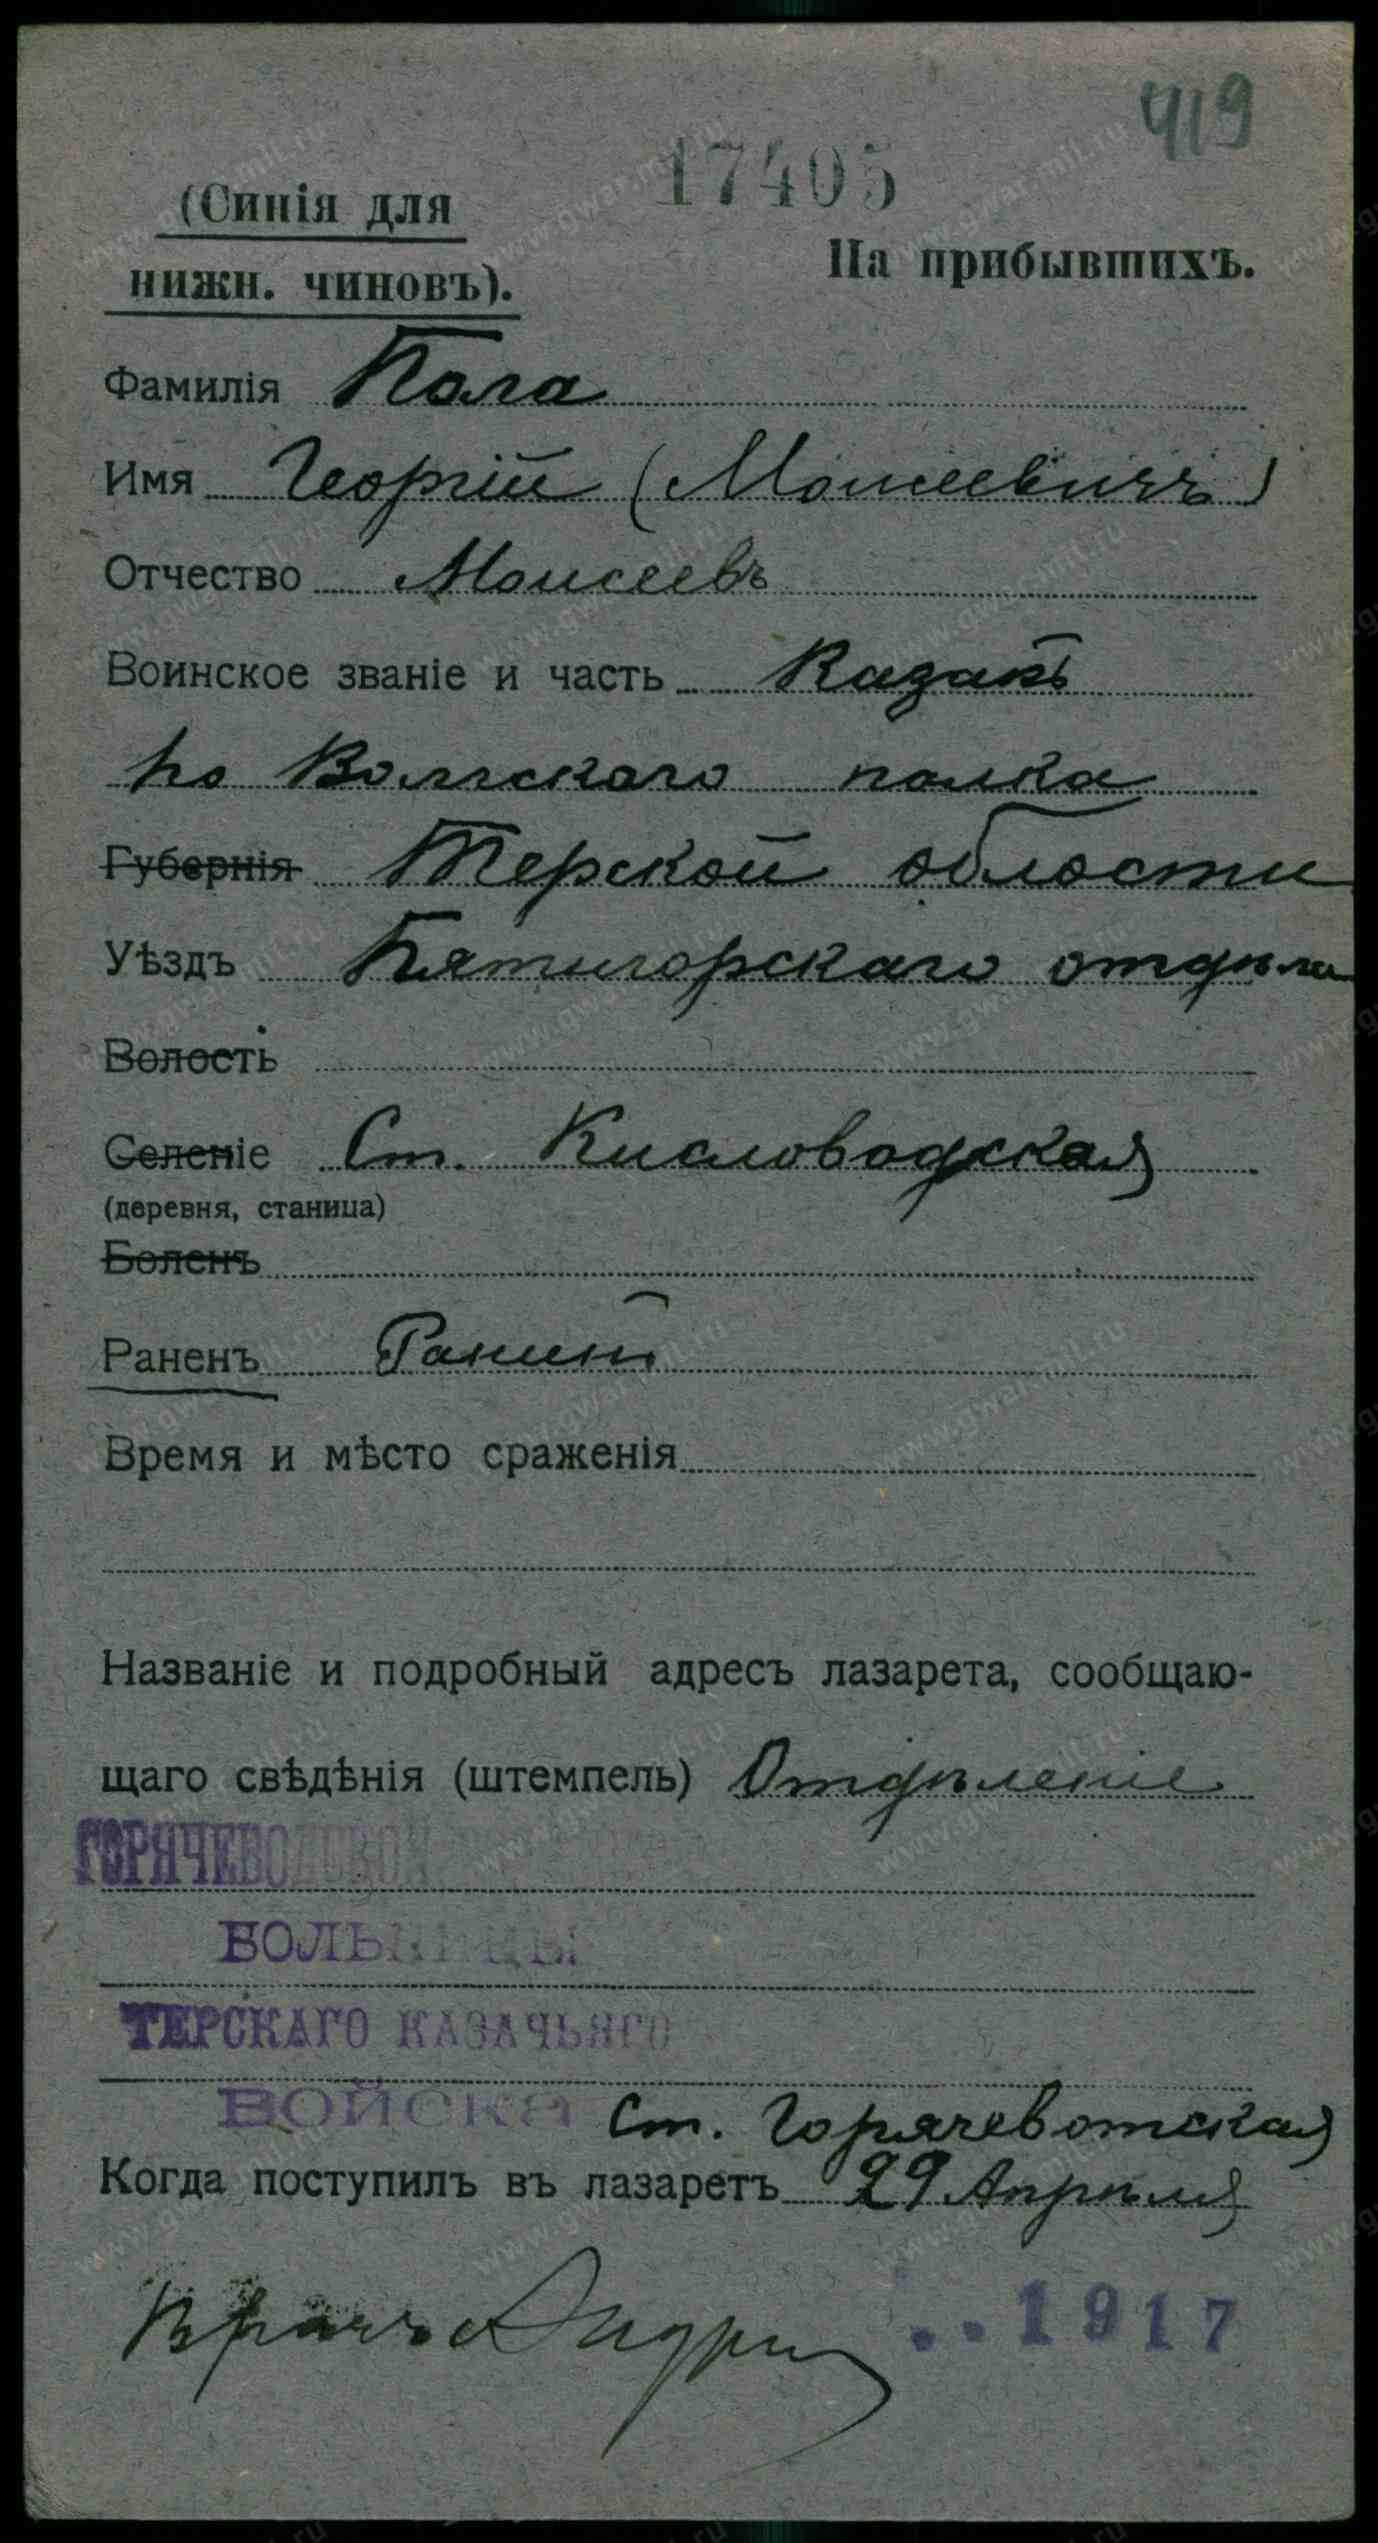 419
17405
(Синія для
нижн. чиновъ).
На прибывшихъ.
Фамилія Пола
Имя Георгій (Моисеевичъ)
Отчество Моисеевъ
Воинское званіе и часть Казакъ
Волгскаго полка
Губернія Терской области
Уѣздъ Пятигорскаго отдѣла
Волость
Селеніе Ст. Кисловодская
(деревня, станица)
Боленъ
Раненъ Раненъ
Время и мѣсто сраженія
Названіе и подробный адресъ лазарета, сообщаю-
щаго свѣдѣнія (штемпель) Отдѣленіе
ГОРЯЧЕВОДСКОЙ
БОЛЬНИЦЫ
ТЕРСКАГО КАЗАЧЬЯГО
ВОЙСКА ст. Горячевотская
Когда поступилъ въ лазаретъ 29 Апрѣля
1917
Врачъ